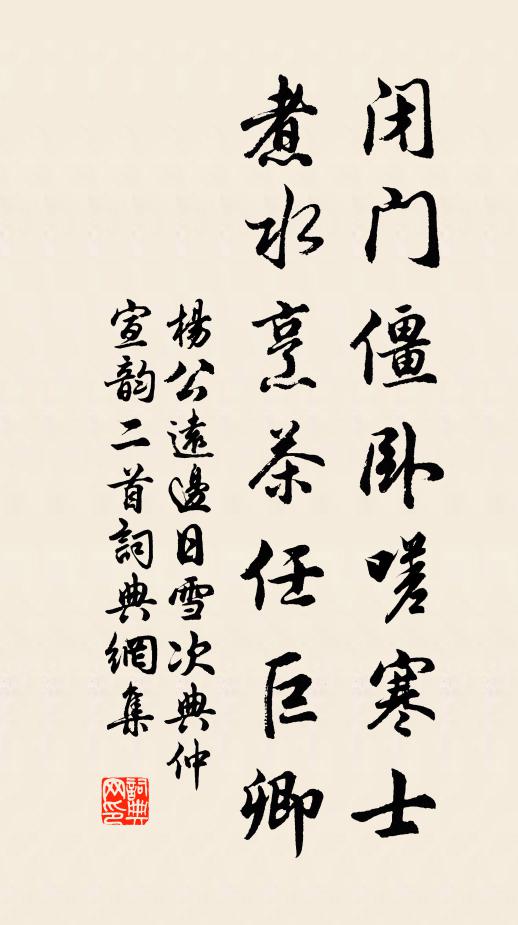 闭门僵卧嗟寒士
煮水烹茶任巨卿
楊公遠邊日雪次典仲
宣韵二首詞典網集
詞典網印